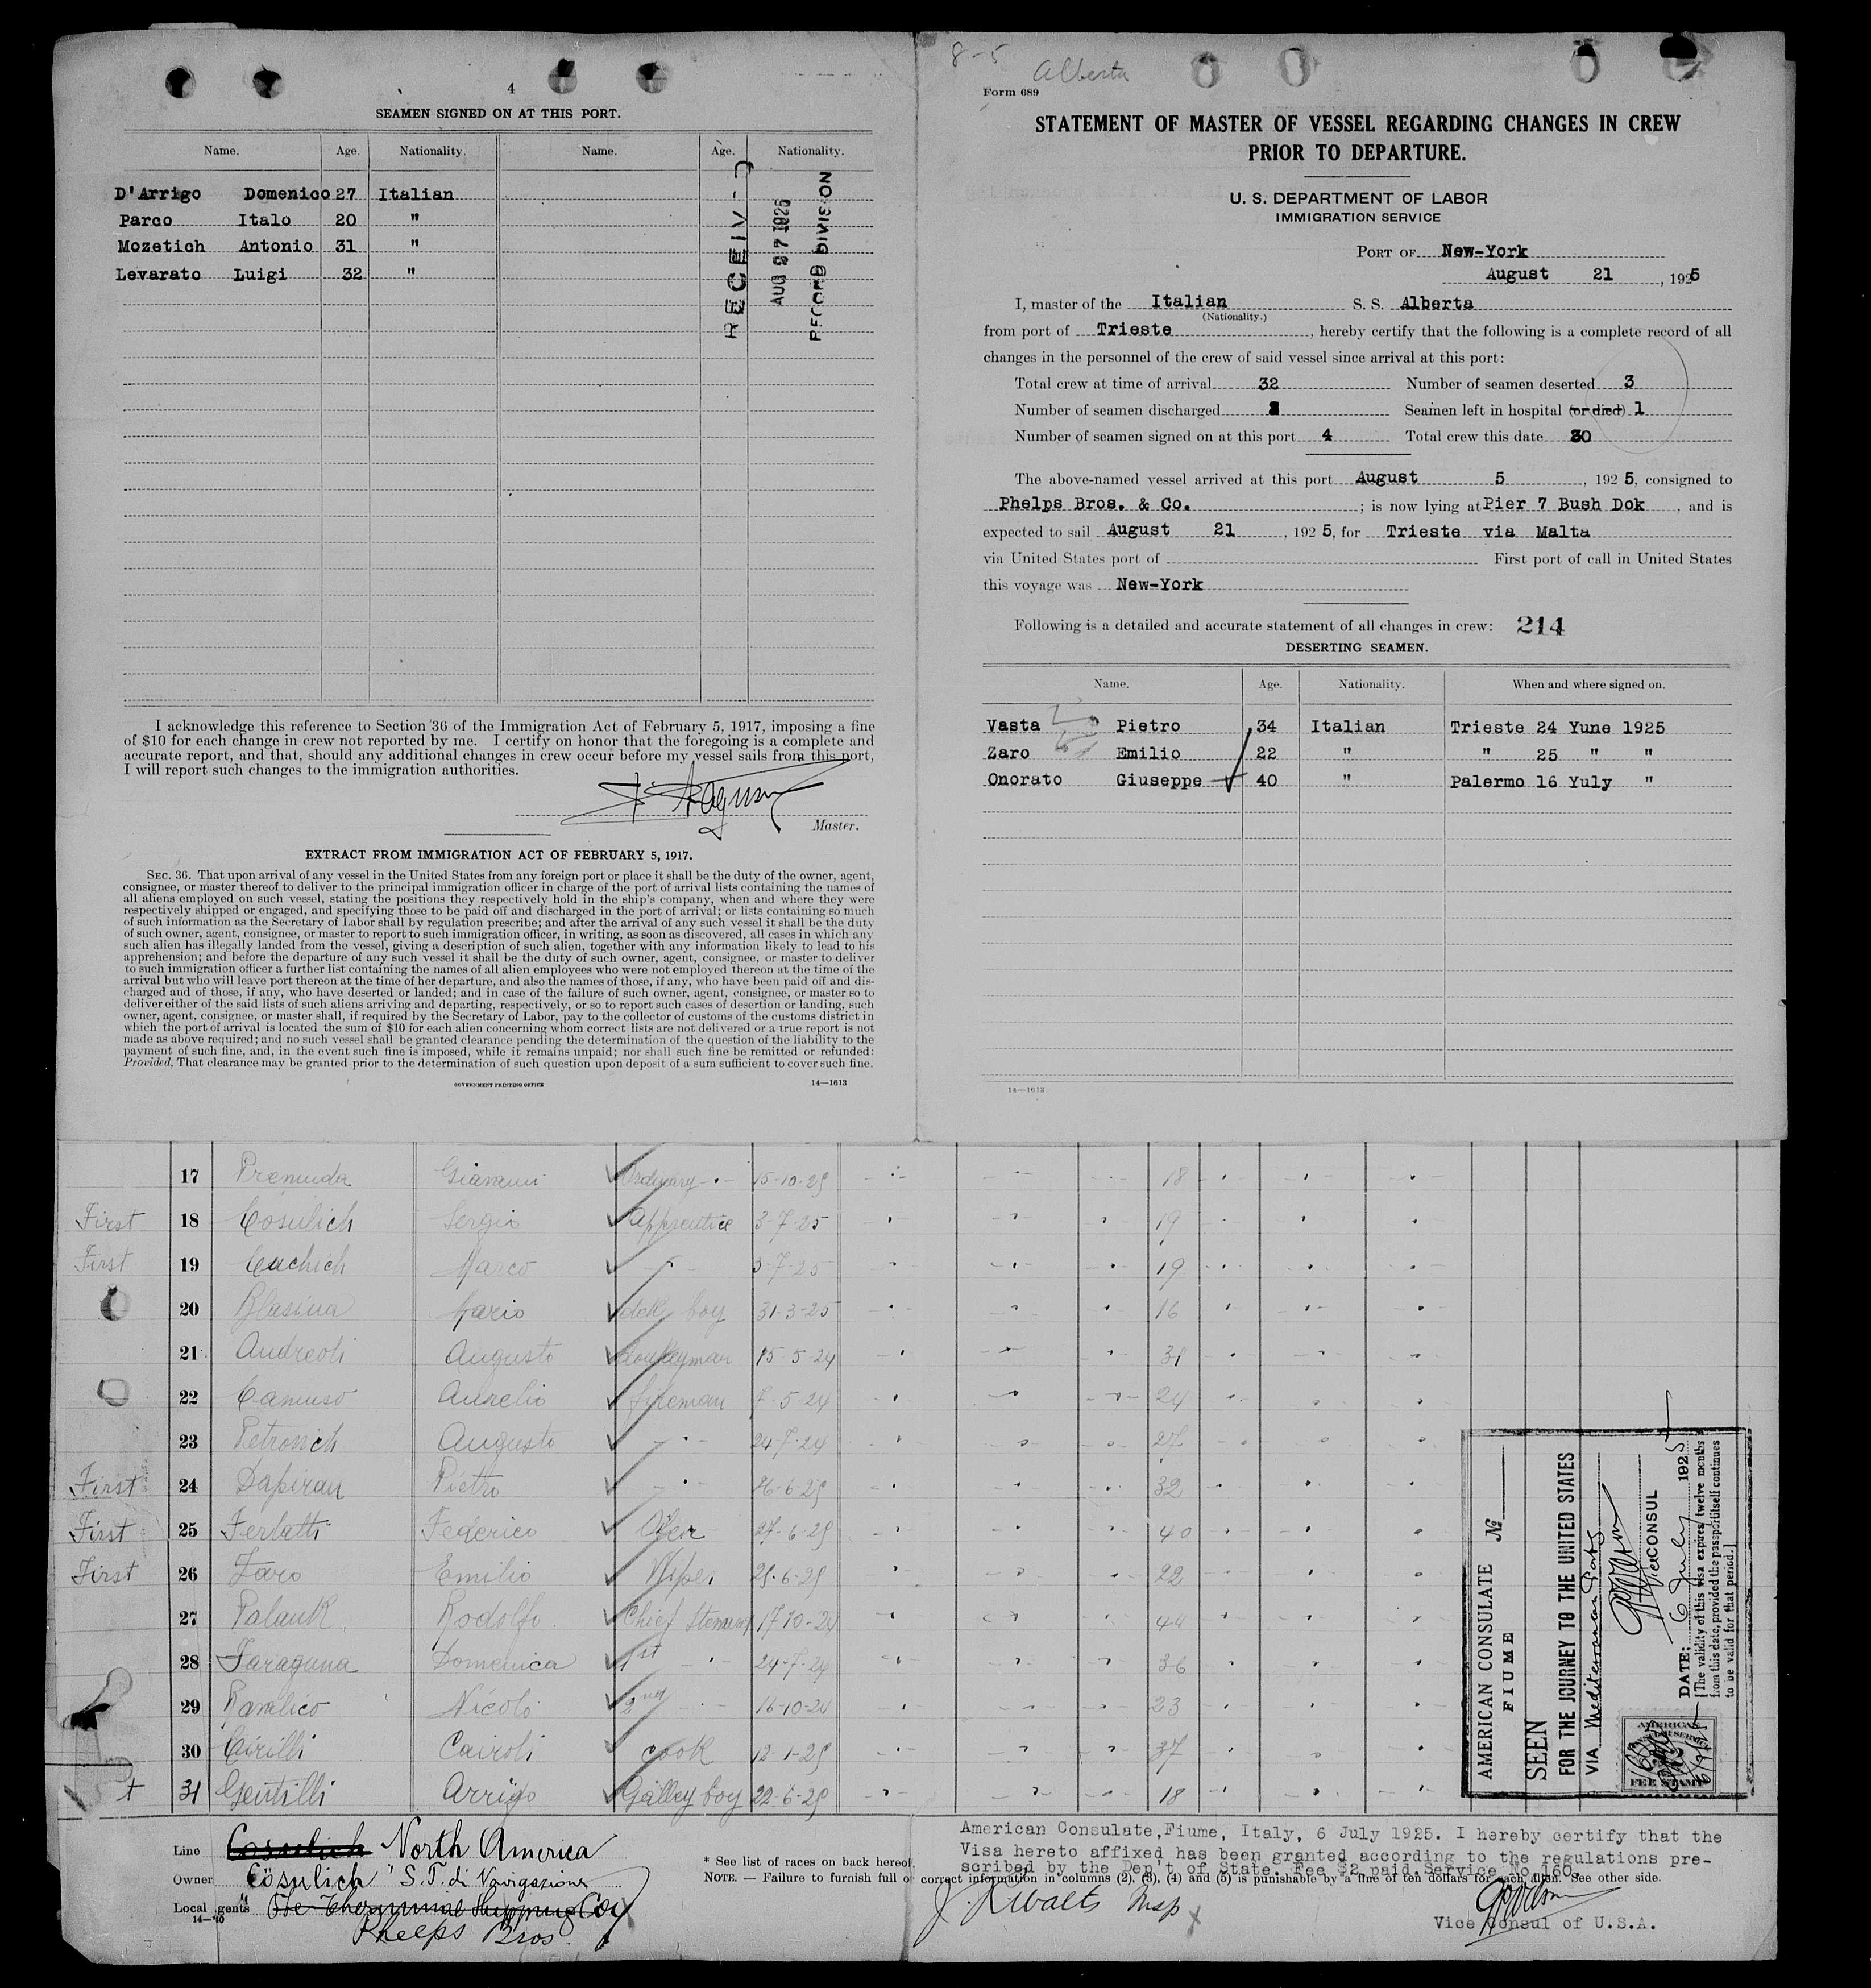 4
SEAMEN SIGNED ON AT THIS PORT.
Name. Age. Nationality. Name. Age. Nationality.
D'Arrigo Domenico 27 Italian
Parco Italo 20 "
Mozetich Antonio 31 "
Levarato Luigi 32 "
AUG 27 1925
I acknowledge this reference to Section 36 of the Immigration Act of February 5, 1917, imposing a fine
of $10 for each change in crew not reported by me. I certify on honor that the foregoing is a complete and
accurate report, and that, should any additional changes in crew occur before my vessel sails from this port,
I will report such changes to the immigration authorities.
Master.
EXTRACT FROM IMMIGRATION ACT OF FEBRUARY 5, 1917.
SEC. 36. That upon arrival of any vessel in the United States from any foreign port or place it shall be the duty of the owner, agent,
consignee, or master thereof to deliver to the principal immigration officer in charge of the port of arrival lists containing the names of
all aliens employed on such vessel, stating the positions they respectively hold in the ship's company, when and where they were
respectively shipped or engaged, and specifying those to be paid off and discharged in the port of arrival; or lists containing so much
of such information as the Secretary of Labor shall by regulation prescribe; and after the arrival of any such vessel it shall be the duty
of such owner, agent, consignee, or master to report to such immigration officer, in writing, as soon as discovered, all cases in which any
such alien has illegally landed from the vessel, giving a description of such alien, together with any information likely to lead to his
apprehension; and before the departure of any such vessel it shall be the duty of such owner, agent, consignee, or master to deliver
to such immigration officer a further list containing the names of all alien employees who were not employed thereon at the time of the
arrival but who will leave port thereon at the time of her departure, and also the names of those, if any, who have been paid off and dis-
charged and of those, if any, who have deserted or landed; and in case of the failure of such owner, agent, consignee, or master so to
deliver either of the said lists of such aliens arriving and departing, respectively, or so to report such cases of desertion or landing, such
owner, agent, consignee, or master shall, if required by the Secretary of Labor, pay to the collector of customs of the customs district in
which the port of arrival is located the sum of $10 for each alien concerning whom correct lists are not delivered or a true report is not
made as above required; and no such vessel shall be granted clearance pending the determination of the question of the liability to the
payment of such fine, and, in the event such fine is imposed, while it remains unpaid; nor shall such fine be remitted or refunded:
Provided, That clearance may be granted prior to the determination of such question upon deposit of a sum sufficient to cover such fine.
GOVERNMENT PRINTING OFFICE 14—1613
8-5 Alberta
Form 689
STATEMENT OF MASTER OF VESSEL REGARDING CHANGES IN CREW
PRIOR TO DEPARTURE.
U. S. DEPARTMENT OF LABOR
IMMIGRATION SERVICE
PORT OF New-York
August 21, 1925
I, master of the Italian S. S. Alberta
(Nationality.)
from port of Trieste, hereby certify that the following is a complete record of all
changes in the personnel of the crew of said vessel since arrival at this port:
Total crew at time of arrival 32 Number of seamen deserted 3
Number of seamen discharged Seamen left in hospital (or died) 1
Number of seamen signed on at this port 4 Total crew this date 30
The above-named vessel arrived at this port August 5, 1925, consigned to
Phelps Bros. & Co.; is now lying at Pier 7 Bush Dok, and is
expected to sail August 21, 1925, for Trieste via Malta
via United States port of First port of call in United States
this voyage was New-York
Following is a detailed and accurate statement of all changes in crew: 214
DESERTING SEAMEN.
Name. Age. Nationality. When and where signed on.
Vasta Pietro 34 Italian Trieste 24 Yune 1925
Zaro Emilio 22 " " 25 " "
Onorato Giuseppe 40 " Palermo 16 Yuly "
14—1613
17 Premuda Gianni Ordinary 15-10-25 18
First 18 Cosulich Sergio Apprentice 3-7-25 19
First 19 Marco 3-7-25 19
20 Blasina Mario deck boy 31-3-25 16
21 Andreoli Augusto donkeyman 15-5-24 31
22 Camuso Aurelio fireman 7-5-24 24
23 Augusto 24-7-24 27
First 24 Pietro 26-6-25 32
First 25 Ferlatti Federico 27-6-25 40
First 26 Zaro Emilio Wiper 25-6-25 22
27 Rodolfo Chief Steward 17-10-24 44
28 Faraguna Domenica 1st 24-7-24 36
29 Nicolo 2nd 16-10-24 23
30 Cirilli Cairoli cook 12-1-25 37
+ 31 Gentilli Arrigo Galley boy 22-6-25 18
AMERICAN CONSULATE No
FIUME
SEEN
FOR THE JOURNEY TO THE UNITED STATES
VIA Mediterranean Ports
Vice CONSUL
DATE: 6 July 1925
[The validity of this visa expires twelve months
from this date, provided the passport itself continues
to be valid for that period.]
FEE STAMP
Line Cosulich North America
Owner Cosulich "S.T. di Navigazione
Local agents Phelps Bros.
14—10
* See list of races on back hereof.
NOTE. — Failure to furnish full or correct information in columns (2), (3), (4) and (5) is punishable by a fine of ten dollars for each alien. See other side.
American Consulate, Fiume, Italy, 6 July 1925. I hereby certify that the
Visa hereto affixed has been granted according to the regulations pre-
scribed by the Dep't of State. Fee $2 paid. Service No. 160.
Vice Consul of U.S.A.